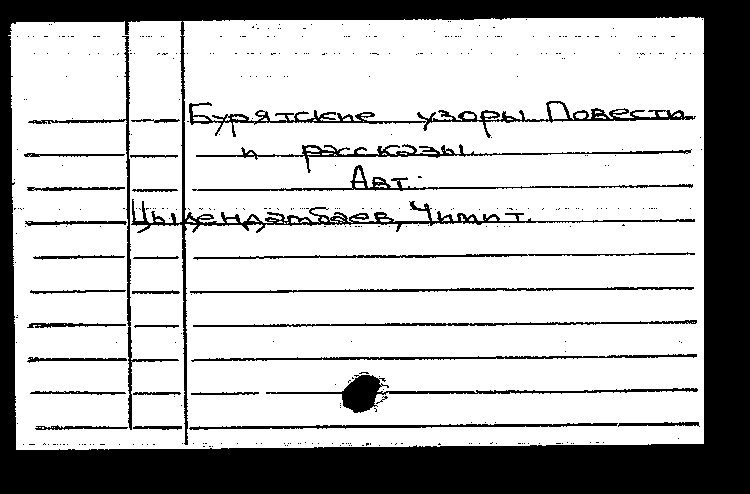 Бурятские узоры Повести
и рассказы
Авт.:
Цыдендамбаев, Чимит.